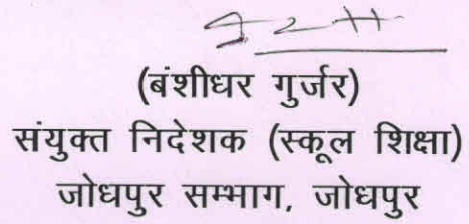 (बंशीधर गुर्जर)
संयुक्त निदेशक (स्कूल शिक्षा)
जोधपुर सम्भाग, जोधपुर